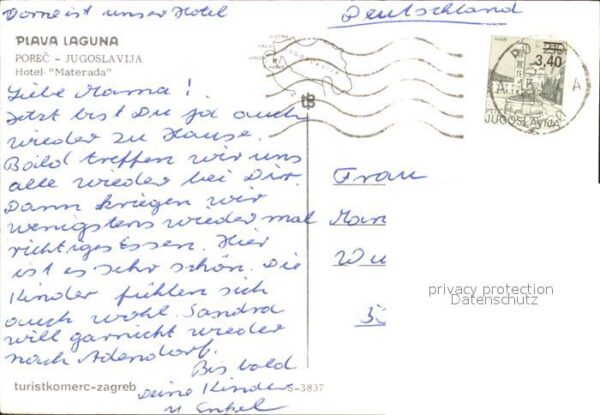 Vorne ist unser Hotel
Deutschland
PLAVA LAGUNA
POREČ - JUGOSLAVIJA
Hotel "Materada"
Liebe Mama!
Jetzt bist Du ja auch
wieder zu Hause.
Bald treffen wir uns
alle wieder bei Dir.
Dann kriegen wir
wenigstens wieder mal
richtiges Essen. Hier
ist es sehr schön. Die
Kinder fühlen sich
auch wohl. Sandra
will garnicht wieder
nach Adendorf.
Bis bald
Deine Kinder
u Enkel
turistkomerc-zagreb
S-3837
JUGOSLAVIJA
HVAR
3,40
JUGOSLAVIJA
Frau
Mar
Wu
privacy protection
Datenschutz